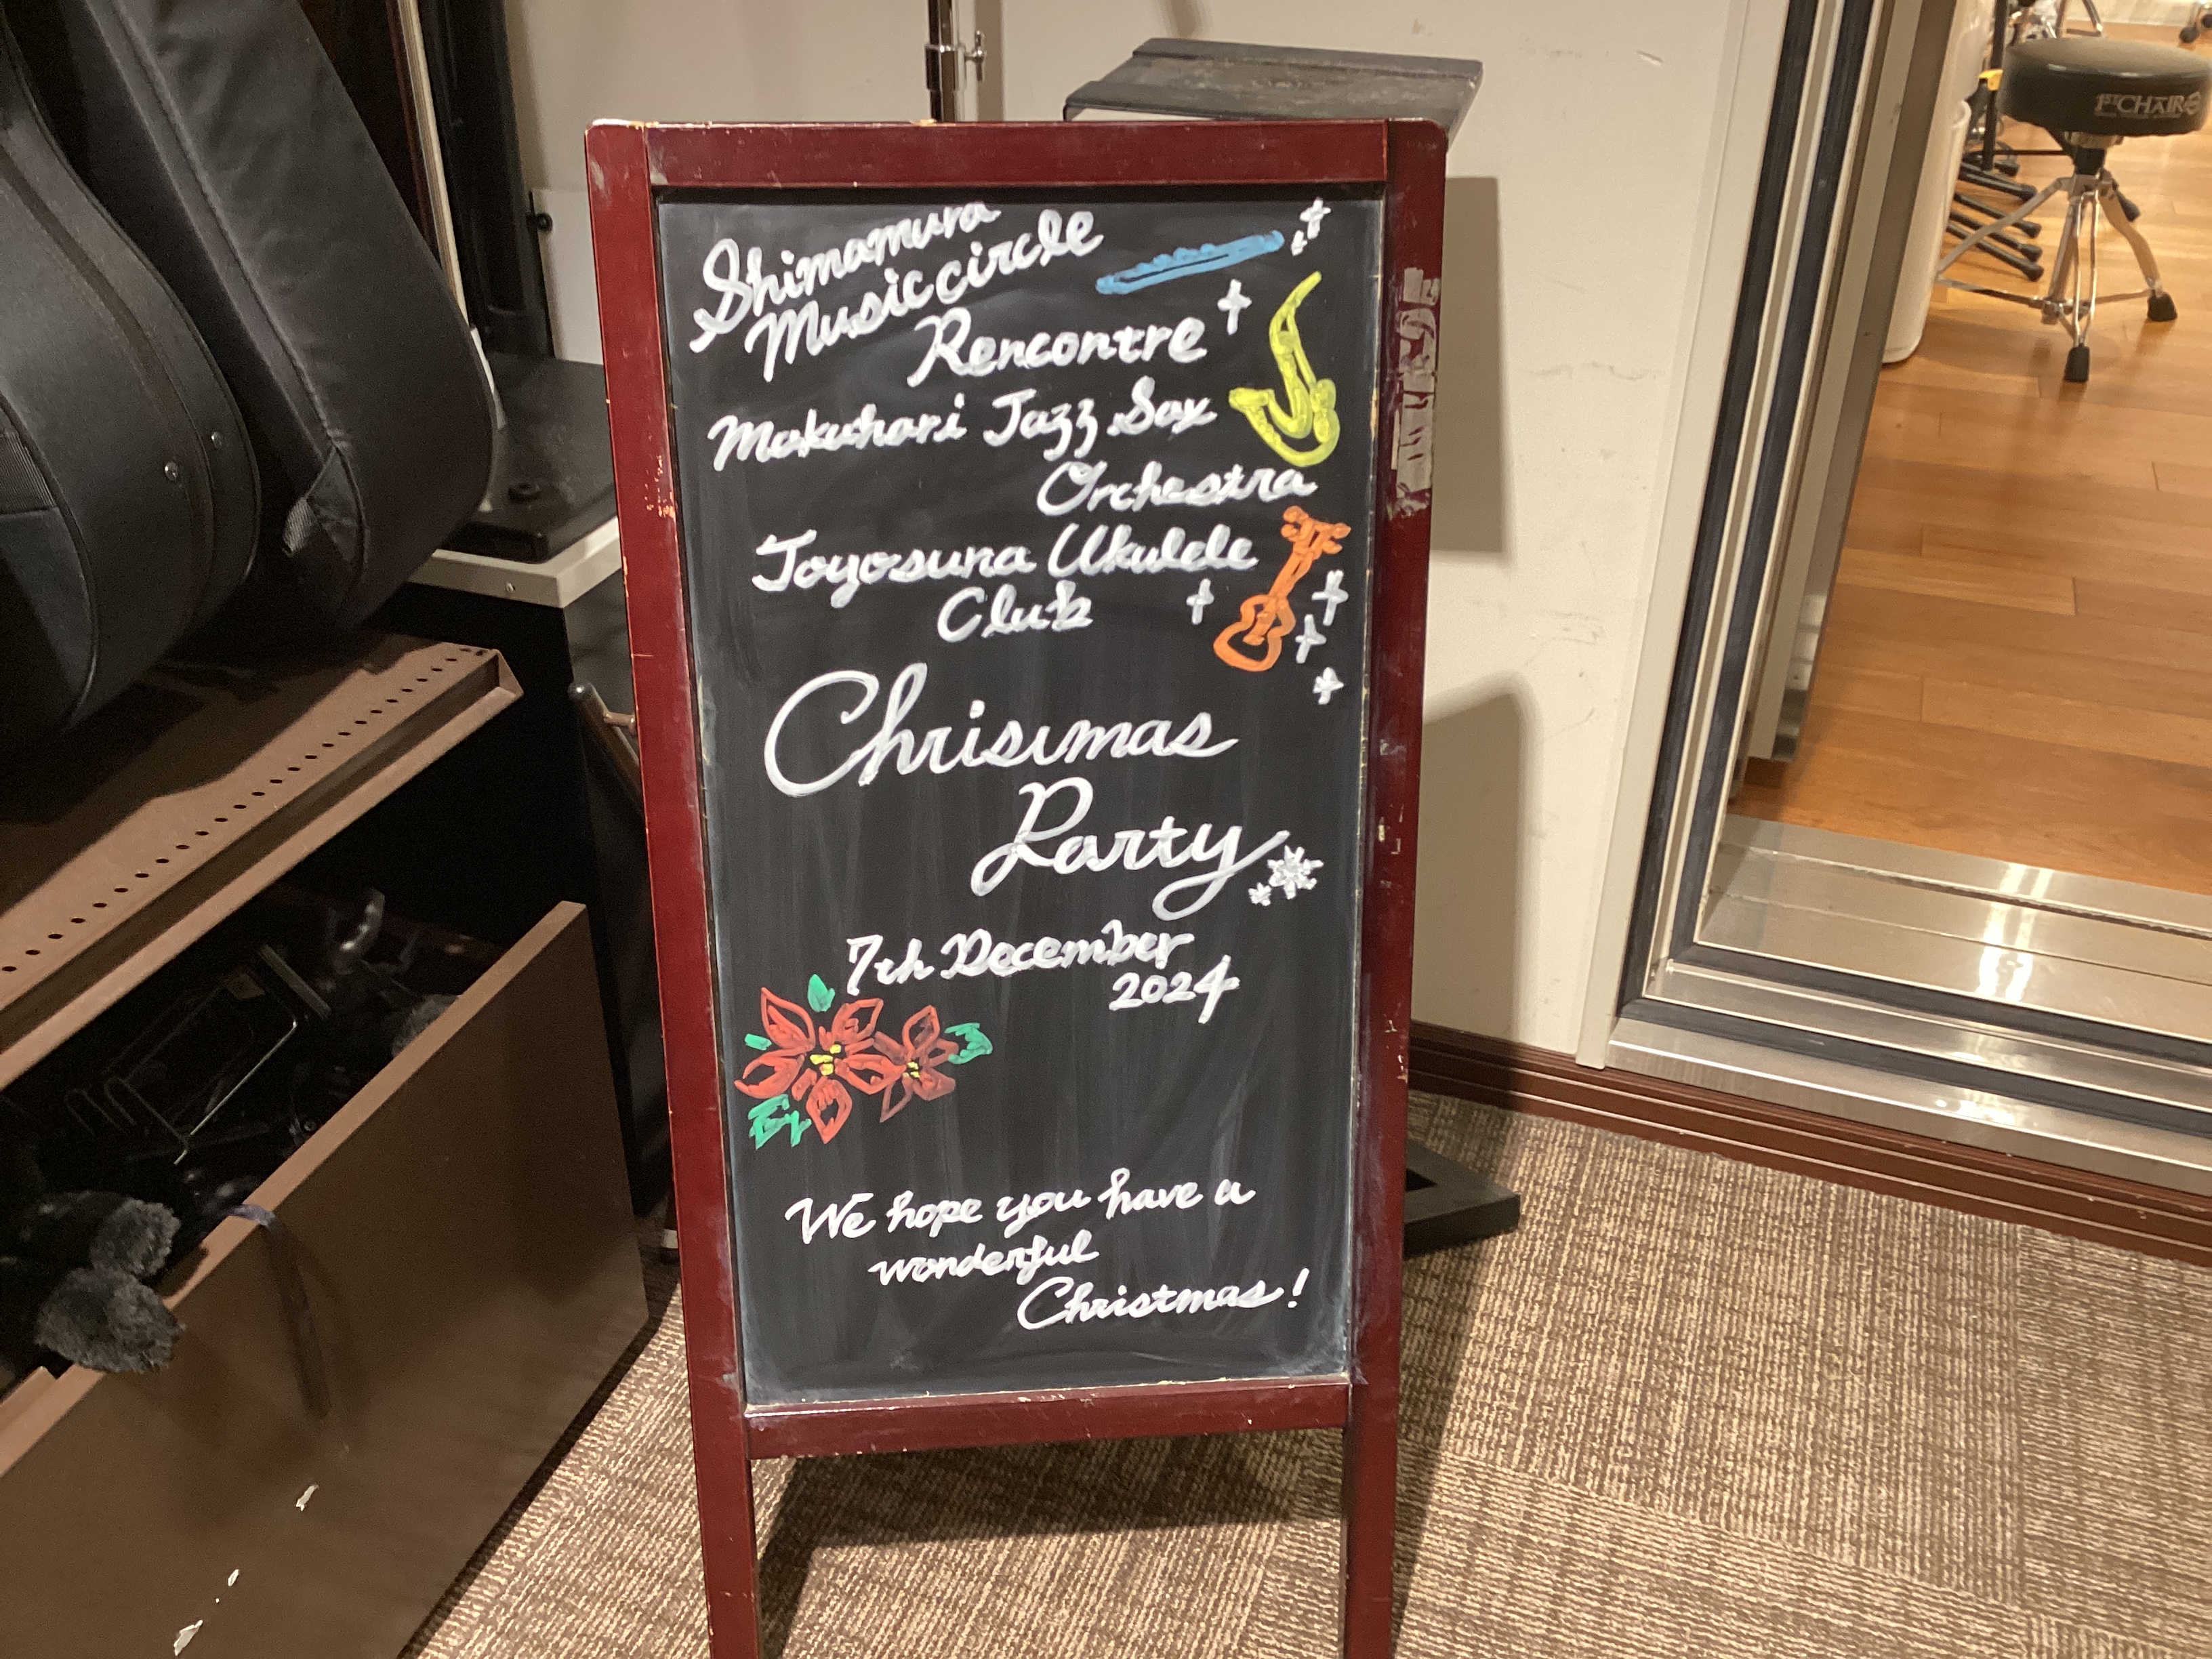 Shimamura
Music circle
Rencontre
Makuhari Jazz Sax
Orchestra
Toyosuna Ukulele
Club
Christmas
Party
7th December
2024
We hope you have a
wonderful
Christmas!
1ST CHAIR